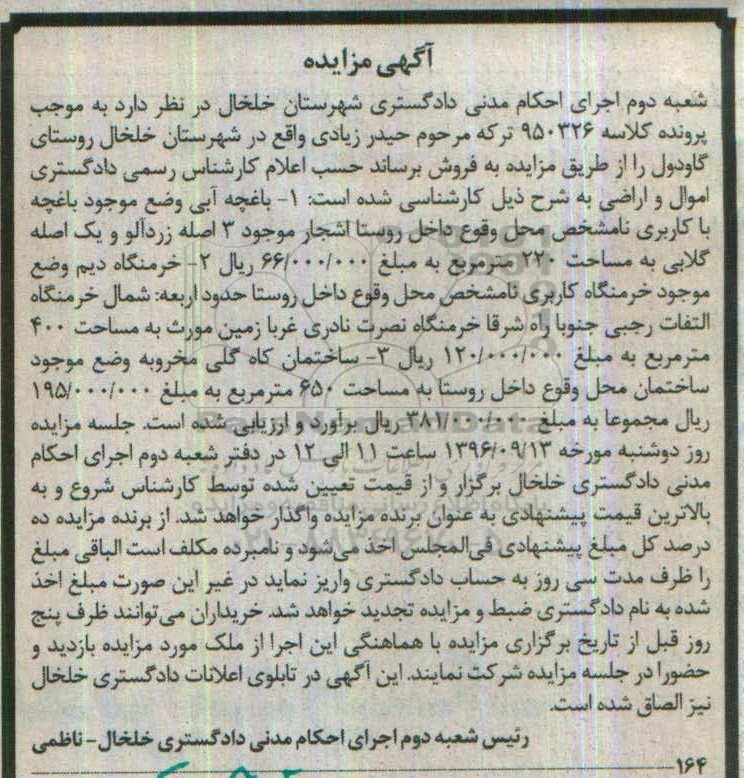 آگهی مزایده
شعبه دوم اجرای احکام مدنی دادگستری شهرستان خلخال در نظر دارد به موجب
پرونده کلاسه ۹۵۰۳۲۶ ترکه مرحوم حیدر زیادی واقع در شهرستان خلخال روستای
گاودول را از طریق مزایده به فروش برساند حسب اعلام کارشناس رسمی دادگستری
اموال و اراضی به شرح ذیل کارشناسی شده است: ۱- باغچه آبی وضع موجود باغچه
با کاربری نامشخص محل وقوع داخل روستا اشجار موجود ۳ اصله زردآلو و یک اصله
گلابی به مساحت ۲۲۰ مترمربع به مبلغ ۶۶/۰۰۰/۰۰۰ ریال ۲- خرمنگاه دیم وضع
موجود خرمنگاه کاربری نامشخص محل وقوع داخل روستا حدود اربعه: شمال خرمنگاه
التفات رجبی جنوبا راه شرقا خرمنگاه نصرت نادری غربا زمین مورث به مساحت ۴۰۰
مترمربع به مبلغ ۱۲۰/۰۰۰/۰۰۰ ریال ۳- ساختمان کاه گلی مخروبه وضع موجود
ساختمان محل وقوع داخل روستا به مساحت ۶۵۰ مترمربع به مبلغ ۱۹۵/۰۰۰/۰۰۰
ریال مجموعا به مبلغ ۳۸۱/۰۰۰/۰۰۰ ریال برآورد و ارزیابی شده است. جلسه مزایده
روز دوشنبه مورخه ۱۳۹۶/۰۹/۱۳ ساعت ۱۱ الی ۱۲ در دفتر شعبه دوم اجرای احکام
مدنی دادگستری خلخال برگزار و از قیمت تعیین شده توسط کارشناس شروع و به
بالاترین قیمت پیشنهادی به عنوان برنده مزایده واگذار خواهد شد. از برنده مزایده ده
درصد کل مبلغ پیشنهادی فی‌المجلس اخذ می‌شود و نامبرده مکلف است الباقی مبلغ
را ظرف مدت سی روز به حساب دادگستری واریز نماید در غیر این صورت مبلغ اخذ
شده به نام دادگستری ضبط و مزایده تجدید خواهد شد. خریداران می‌توانند ظرف پنج
روز قبل از تاریخ برگزاری مزایده با هماهنگی این اجرا از ملک مورد مزایده بازدید و
حضورا در جلسه مزایده شرکت نمایند. این آگهی در تابلوی اعلانات دادگستری خلخال
نیز الصاق شده است.
رئیس شعبه دوم اجرای احکام مدنی دادگستری خلخال - ناظمی
۱۶۴